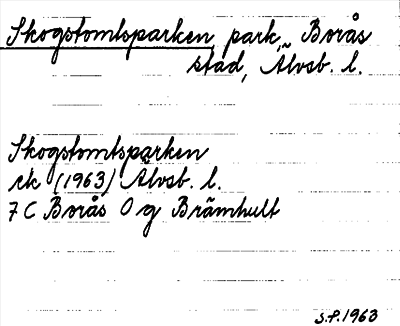 Skogstomtsparken, park, Borås
stad, Älvsb. l.
Skogstomtsparken
ek (1963) Älvsb. l.
7 C Borås O g Brämhult
S.P. 1963